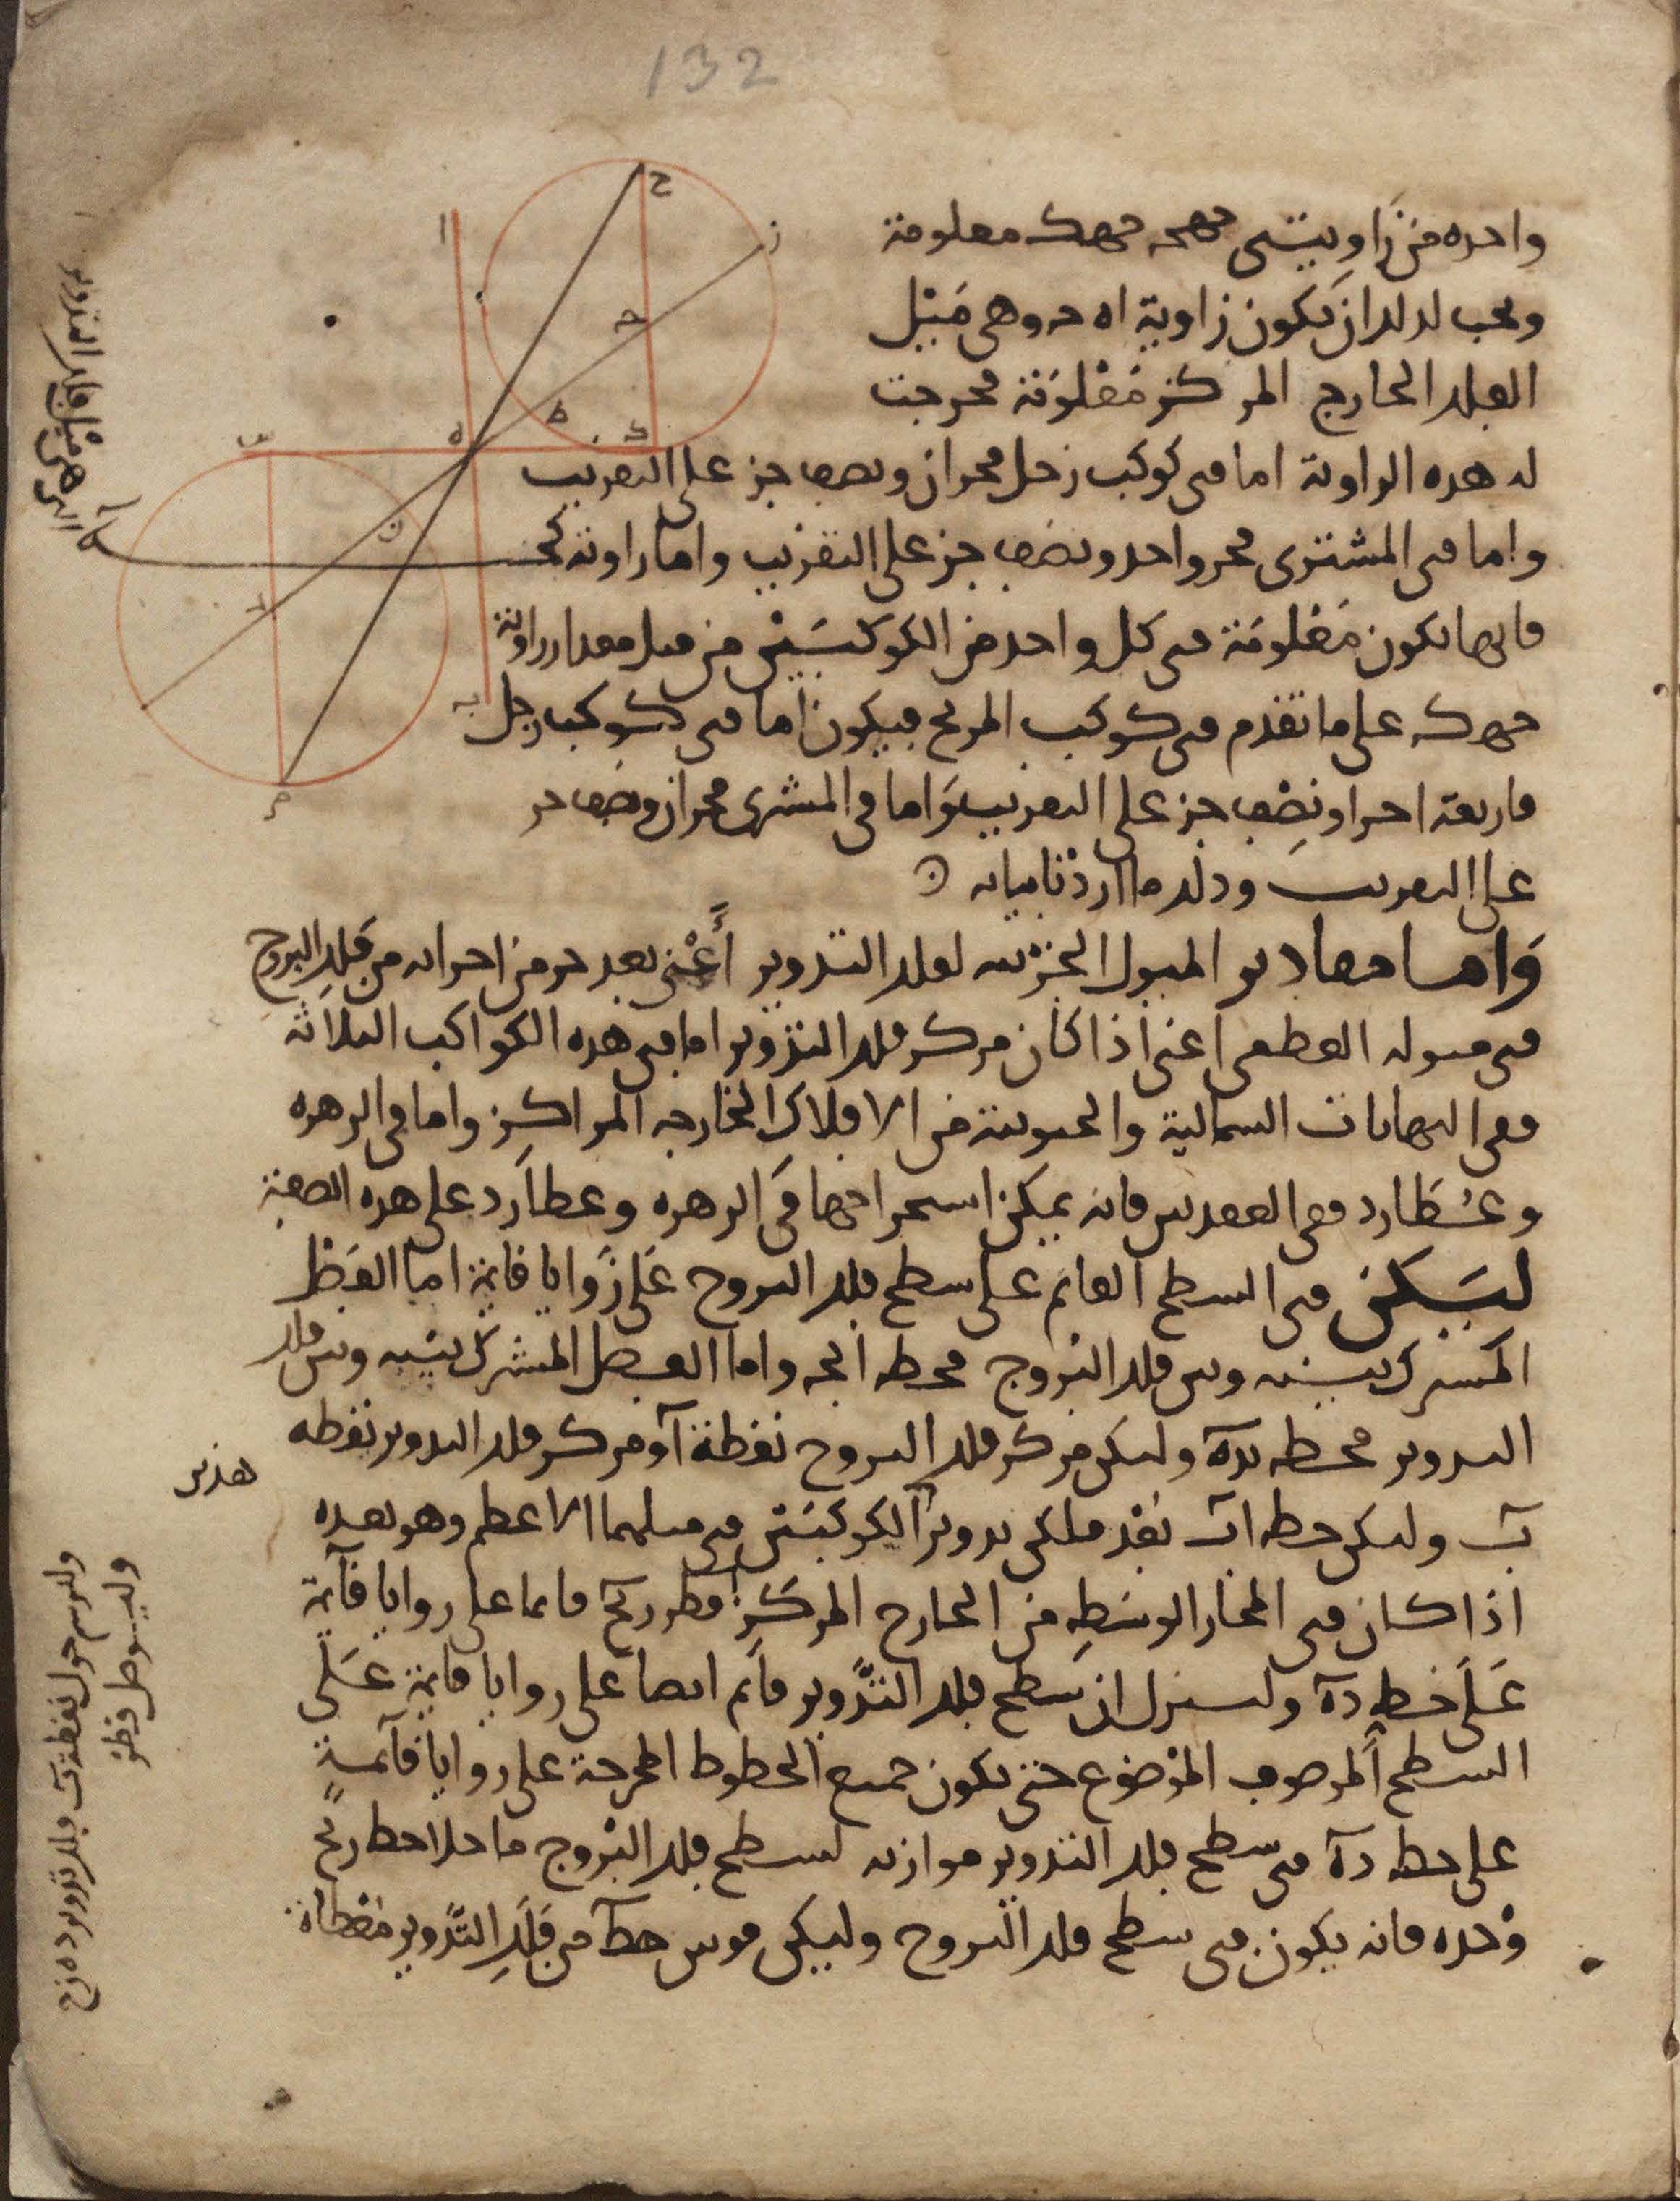 132
واحده من زاويتى حهح حهك معلومة
ويجب لذلك ان تكون زاوية اه ح وهى ميل
الفلك الخارج المركز معلومة فخرجت
له هذه الزاوية اما فى كوكب زحل فجزان ونصف جز على التقريب
واما فى المشترى فجز واحد ونصف جز على التقريب واما زاوية
فانها تكون معلومة فى كل واحد من الكوكبين من قبل مقدار زاوية
حهك على ما تقدم فى كوكب المريخ فيكون اما فى كوكب زحل
فاربعة اجزا ونصف جز على التقريب واما فى المشترى فجزان ونصف جز
على التقريب وذلك ما اردنا بيانه
واما مقادير الميول الجزئية لفلك التدوير أعنى بعد جز من اجزائه من فلك البروج
فى ميوله العظمى اعنى اذا كان مركز فلك التدوير اما فى هذه الكواكب الثلاثة
ففى النهايات الشمالية والجنوبية من الافلاك الخارجة المراكز واما فى الزهرة
وعطارد ففى العقدتين فانه يمكن استخراجها فى الزهرة وعطارد على هذه الصفة
ليكن فى السطح القائم على سطح فلك البروج على زوايا قائمة اما الفصل
المشترك بينه وبين فلك البروج فخط ابجه واما الفصل المشترك بينه وبين فلك
التدوير فخط دبه وليكن مركز فلك البروج نقطة آ ومركز فلك التدوير نقطة
ب وليكن خط اب بعد فلكى تدوير الكوكبين فى ميلهما الاعظم وهو بعده
اذا كان فى المجاز الوسط من الخارج المركز قطر زبح قائما على زوايا قائمة
على خط ده ولننزل ان سطح فلك التدوير قائم ايضا على زوايا قائمة على
السطح الموصوف الموضوع حتى تكون جميع الخطوط المخرجة على زوايا قائمة
على خط ده فى سطح فلك التدوير موازية لسطح فلك البروج ما خلا خط زبح
وحده فانه يكون فى سطح فلك البروج وليكن قوس هط من فلك التدوير معطاة
هذين
وليرسم حول نقطة ب فلك تدوير ده زح
وليوصل قطر
التى هى ميل فلك التدوير